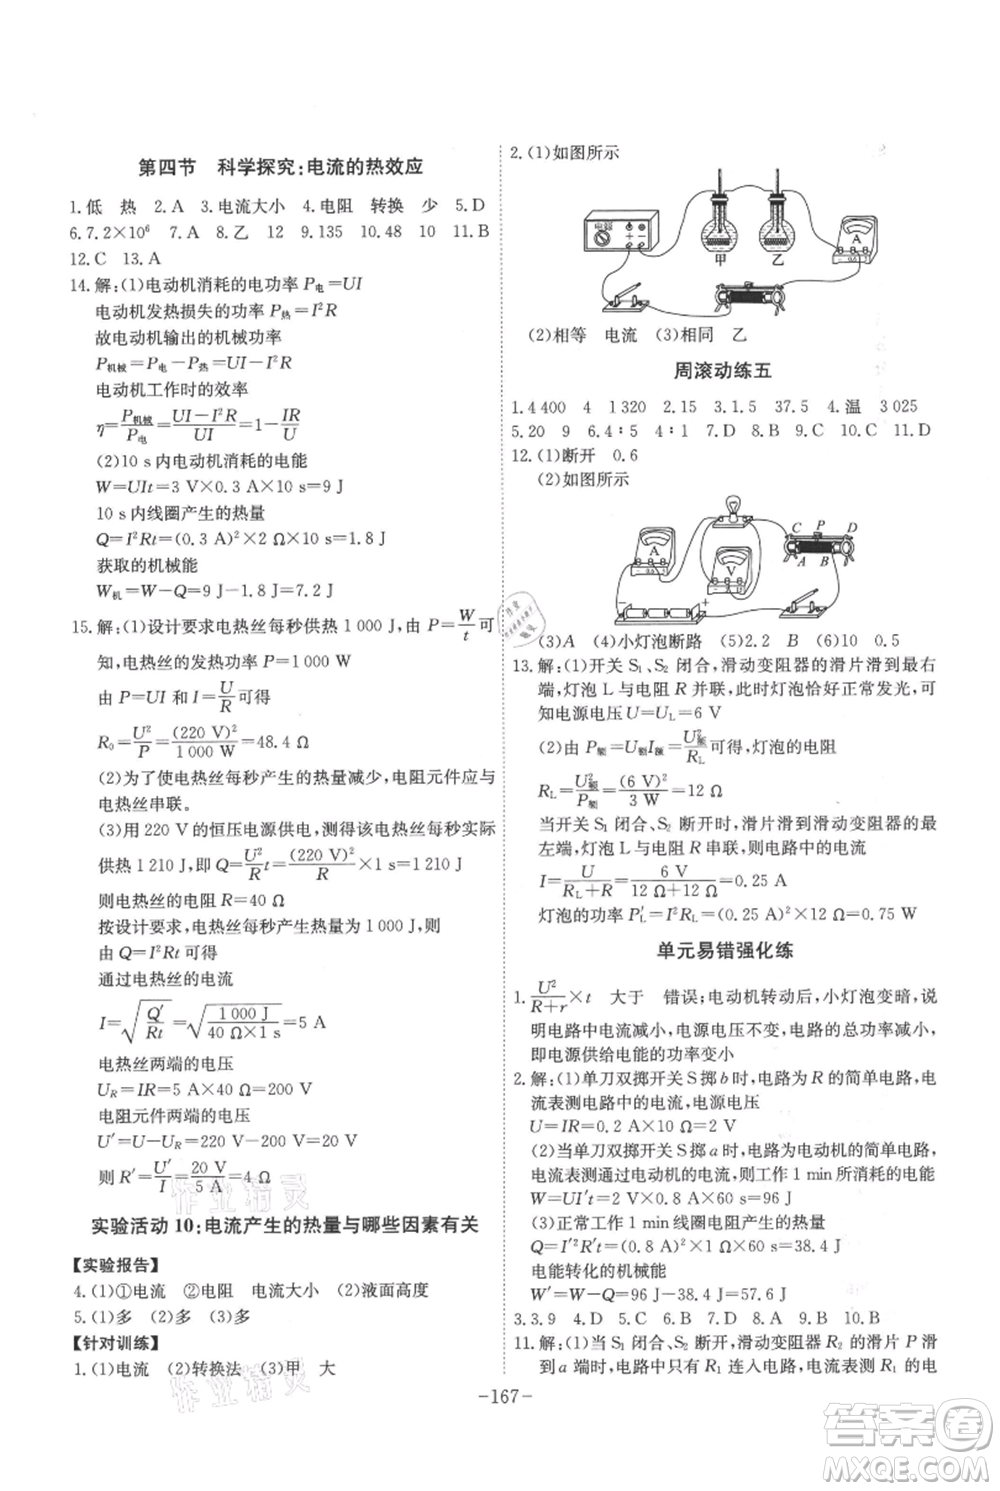 第四节　科学探究:电流的热效应
1.低　热　2.A　3.电流大小　4.电阻　转换　少　5.D
6.7.2×10⁶　7.A　8.乙　12　9.135　10.48　10　11.B
12.C　13.A
14.解:(1)电动机消耗的电功率 P电=UI
电动机发热损失的功率 P热=I²R
故电动机输出的机械功率
P机械=P电−P热=UI−I²R
电动机工作时的效率
η=P机械/P电=(UI−I²R)/UI=1−IR/U
(2)10 s内电动机消耗的电能
W=UIt=3 V×0.3 A×10 s=9 J
10 s内线圈产生的热量
Q=I²Rt=(0.3 A)²×2 Ω×10 s=1.8 J
获取的机械能
W机=W−Q=9 J−1.8 J=7.2 J
15.解:(1)设计要求电热丝每秒供热 1 000 J,由 P=W/t 可
知,电热丝的发热功率 P=1 000 W
由 P=UI 和 I=U/R 可得
R₀=U²/P=(220 V)²/1 000 W=48.4 Ω
(2)为了使电热丝每秒产生的热量减少,电阻元件应与
电热丝串联。
(3)用 220 V 的恒压电源供电,测得该电热丝每秒实际
供热 1 210 J,即 Q=U²/R t=(220 V)²/R×1 s=1 210 J
则电热丝的电阻 R=40 Ω
按设计要求,电热丝每秒产生热量 1 000 J,
由 Q=I²Rt 可得
通过电热丝的电流
I=√(Q′/Rt)=√(1 000 J/(40 Ω×1 s))=5 A
电热丝两端的电压
U_R=IR=5 A×40 Ω=200 V
电阻元件两端的电压
U′=U−U_R=220 V−200 V=20 V
则 R′=U′/I=20 V/5 A=4 Ω
实验活动 10:电流产生的热量与哪些因素有关
【实验报告】
4.(1)①电流　②电阻　电流大小　(2)液面高度
5.(1)多　(2)多　(3)多
【针对训练】
1.(1)电流　(2)转换法　(3)甲　大
2.(1)如图所示
甲　乙　A
(2)相等　电流　(3)相同　乙
周滚动练五
1.4 400　4　1 320　2.15　3.1.5　37.5　4.温　3 025
5.20　9　6.4∶5　4∶1　7.D　8.B　9.D　10.C　11.D
12.(1)断开　0.6
(2)如图所示
A　V　C　P　D　A　B　−　+
(3)A　(4)小灯泡断路　(5)2.2　B　(6)10　0.5
13.解:(1)开关 S₁、S₂ 闭合,滑动变阻器的滑片滑到最右
端,灯泡 L 与电阻 R 并联,此时灯泡恰好正常发光,可
知电源电压 U=U_L=6 V
(2)由 P额=U额I额=U²额/R_L可得,灯泡的电阻
R_L=U²额/P额=(6 V)²/3 W=12 Ω
当开关 S₁ 闭合、S₂ 断开时,滑片滑到滑动变阻器的最
左端时,灯泡 L 与电阻 R 串联,则电路中的电流
I=U/(R_L+R)=6 V/(12 Ω+12 Ω)=0.25 A
灯泡的功率 P′_L=I²R_L=(0.25 A)²×12 Ω=0.75 W
单元易错强化练
1.U²/(R+r)×t　大于　错误;电动机转动后,小灯泡变暗,说
明电路中电流减小,电源电压不变,电路的总功率减小,
即电源供给电能的功率变小
2.解:(1)单刀双掷开关 S 掷 b 时,电路为 R 的简单电路,电
流表测电路中的电流,电源电压
U=IR=0.2 A×10 Ω=2 V
(2)当单刀双掷开关 S 掷 a 时,电路为电动机的简单电路,
电流表测通过电动机的电流,则工作 1 min所消耗的电能
W=UI′t=2 V×0.8 A×60 s=96 J
(3)正常工作 1 min线圈电阻产生的热量
Q=I′²R′t=(0.8 A)²×1 Ω×60 s=38.4 J
电能转化的机械能
W′=W−Q=96 J−38.4 J=57.6 J
3.3.9　4.D　5.C　6.D　7.B　8.D　9.A　10.D
11.解:(1)当 S₁ 闭合、S₂ 断开,滑动变阻器 R₂ 的滑片 P 滑
到 a 端时,电路中只有 R₁ 连入电路,电流表测通过 R₁ 的电
−167−
作业精灵
作业精灵
答案圈
MXQE.COM